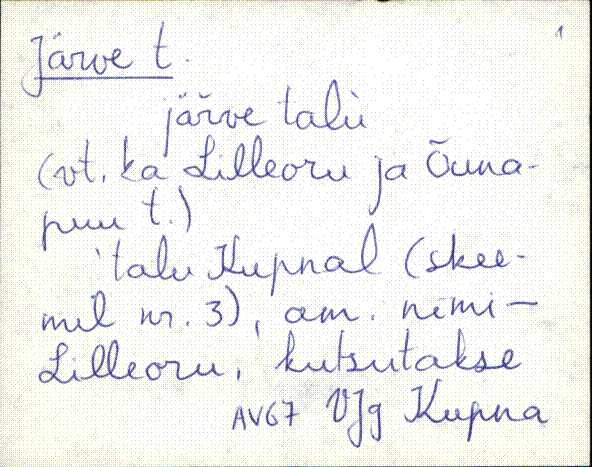 1
Järve t.
järve talu
(vt. ka Lilleoru ja Õuna-
puu t.)
'talu Kupnal (skee-
mil nr. 3), am. nimi –
Lilleoru, kutsutakse
AV67 VJg Kupna